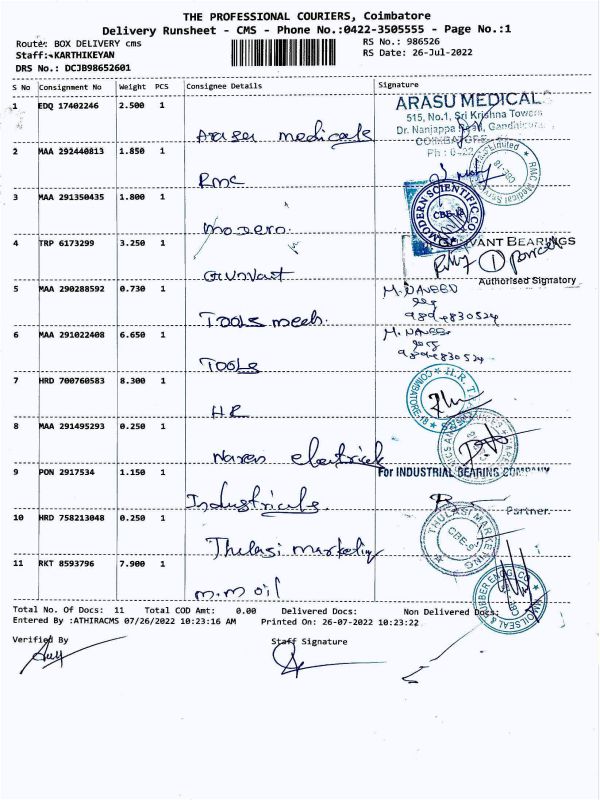 THE PROFESSIONAL COURIERS, Coimbatore
Delivery Runsheet - CMS - Phone No.:0422-3505555 - Page No.:1
Route: BOX DELIVERY cms
RS No.: 986526
Staff:-KARTHIKEYAN
RS Date: 26-Jul-2022
DRS No.: DCJB98652601
S No Consignment No Weight PCS Consignee Details Signature
1 EDQ 17402246 2.500 1
Arasu medicals
ARASU MEDICAL
515, No.1, Sri Krishna Towers
Dr. Nanjappa
COIMBATORE
Ph : 0422
2 MAA 292440813 1.850 1
RMC
Limited
RMC Medical
3 MAA 291350435 1.800 1
MODERN SCIENTIFIC CO
CBE-18
4 TRP 6173299 3.250 1
Gunvast
VANT BEARINGS
Authorised Signatory
5 MAA 290288592 0.730 1
Tools mech
M. NAVEED
6 MAA 291022408 6.650 1
Tools
7 HRD 700760583 8.300 1
HR
H.R.
COIMBATORE-18
8 MAA 291495293 0.250 1
Naren electricals
9 PON 2917534 1.150 1
Industricals
For INDUSTRIAL BEARING COMPANY
Partner.
10 HRD 758213048 0.250 1
Thulasi marketing
THULASI MARKETING
11 RKT 8593796 7.900 1
m.m oil
Total No. Of Docs: 11 Total COD Amt: 0.00 Delivered Docs: Non Delivered Docs:
Entered By :ATHIRACMS 07/26/2022 10:23:16 AM Printed On: 26-07-2022 10:23:22
Verified By
Staff Signature